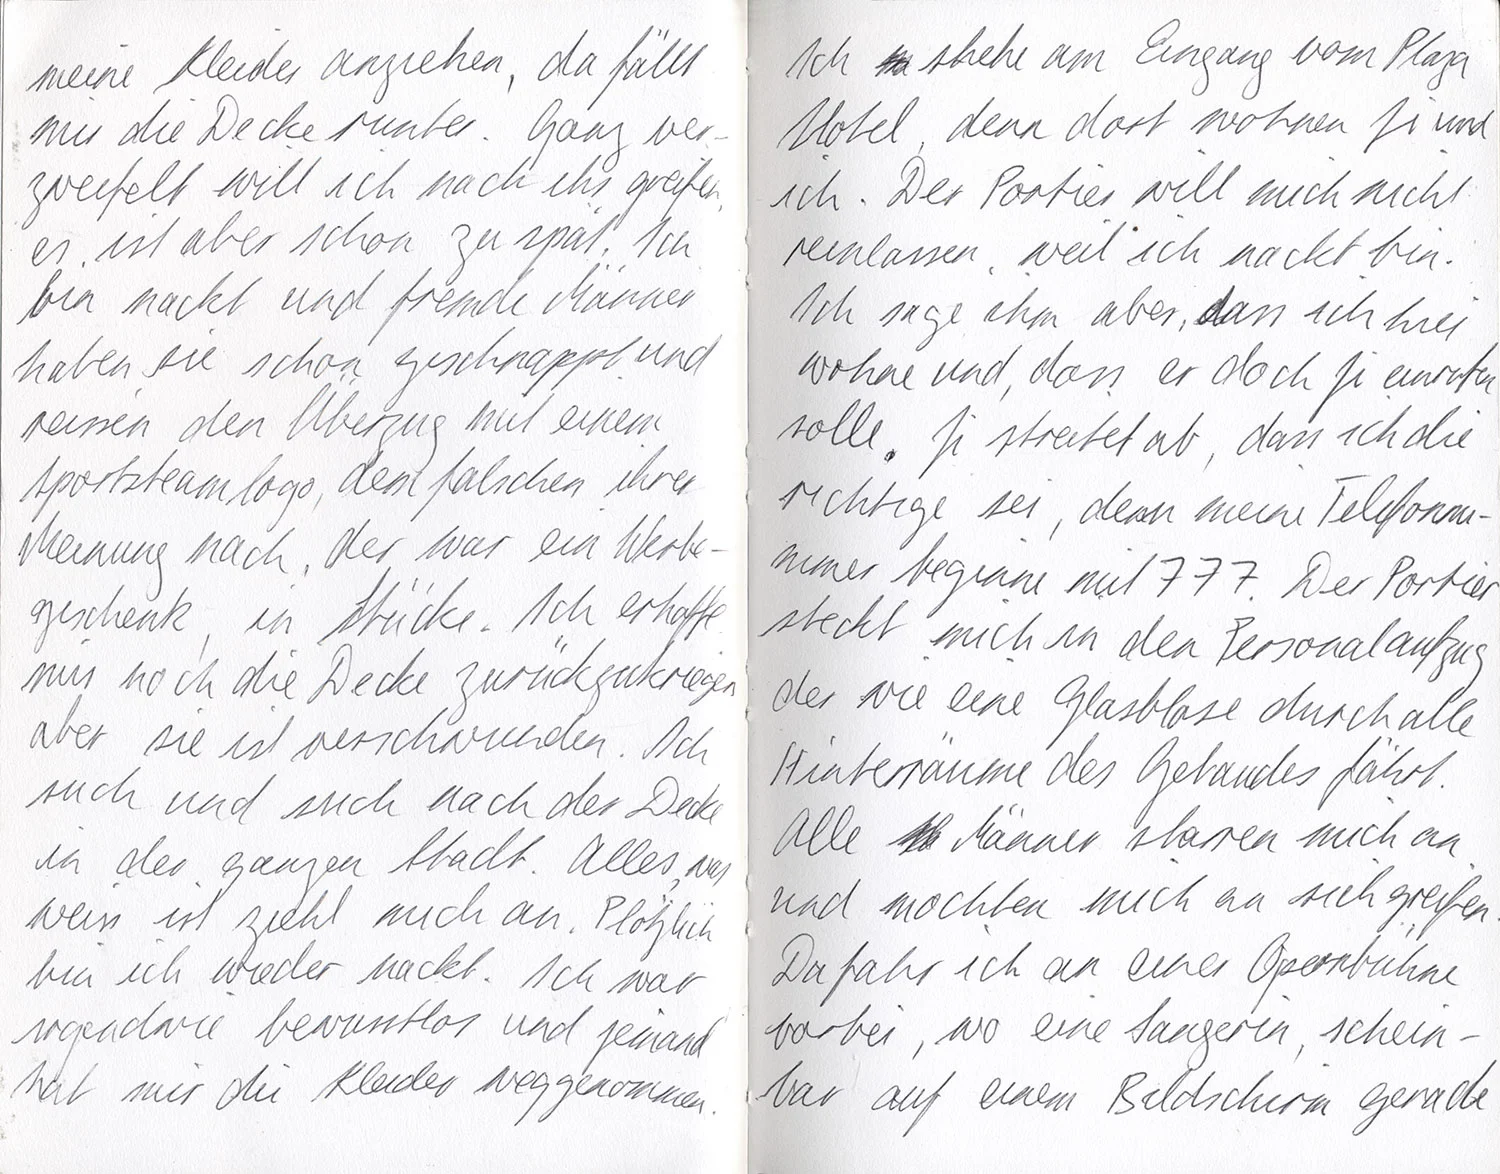 meine Kleider anziehen, da fällt
mir die Decke runter. Ganz ver-
zweifelt will ich nach ihr greifen,
es ist aber schon zu spät. Ich
bin nackt und fremde Männer
haben sie schon geschnappt und
reissen den Überzug mit einem
Sportsteamlogo, dem falschen ihrer
Meinung nach, der war ein Werbe-
geschenk, in Stücke. Ich erhoffe
mir noch die Decke zurückzukriegen
aber sie ist verschwunden. Ich
such und such nach der Decke
in der ganzen Stadt. Alles, was
weiss ist zieht mich an. Plötzlich
bin ich wieder nackt. Ich war
irgendwie bewusstlos und jemand
hat mir die Kleider weggenommen.
Ich stehe am Eingang vom Plaza
Hotel, denn dort wohnen Ji und
ich. Der Portier will mich nicht
reinlassen, weil ich nackt bin.
Ich sage ihm aber, dass ich hier
wohne und, dass er doch Ji anrufen
solle. Ji streitet ab, dass ich die
richtige sei, denn meine Telefonnu-
mmer beginne mit 777. Der Portier
steckt mich in den Personalaufzug
der wie eine Glasblase durch alle
Hinterräume des Gebäudes fährt.
Alle Männer starren mich an
und möchten mich an sich greifen.
Da fahr ich an einer Opernbühne
vorbei, wo eine Sängerin, schein-
bar auf einem Bildschirm gerade